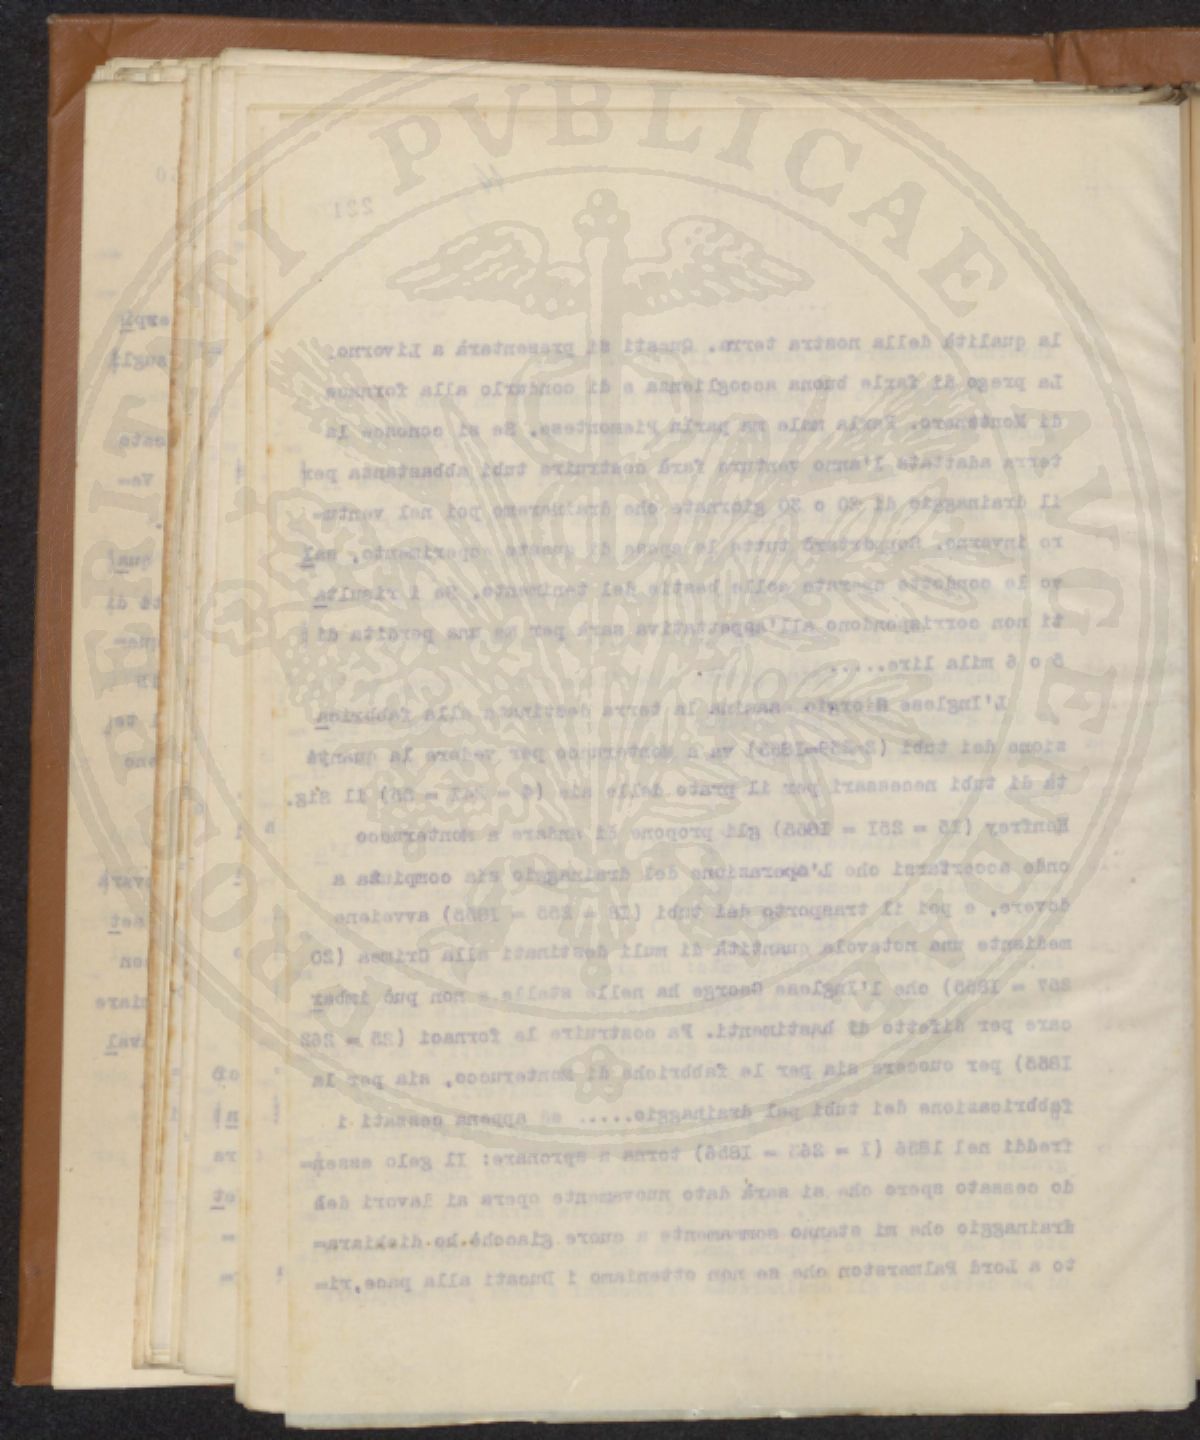 221
la qualità della nostra terra. Questi si presenterà a Livorno.
La prego di farle buona accoglienza e di condurlo alla fornace
di Montanero. Parla male ma parla Piemontese. Se si conosce la
terra adattata l'anno venturo farò costruire tubi abbastanza per
il drainaggio di 20 o 30 giornate che draineremo poi nel ventu-
ro inverno. Sopporterò tutte le spese di questo esperimento, sal
vo le condotte operate colle bestie del tenimento. Se i risulta
ti non corrispondono all'aspettativa sarà per me una perdita di
5 o 6 mila lire.....
L'Inglese Giorgio esamina la terra destinata alla fabbrica
zione dei tubi (2-239-1855) va a Monterucco per vedere la quanti
tà di tubi necessari per il prato delle aie (4 = 241 = 55) il Sig.
Henfrey (15 = 251 = 1855) gli propone di andare a Monterucco
onde accertarsi che l'operazione del drainaggio sia compiuta a
dovere, e poi il trasporto dei tubi (18 = 255 = 1855) avveiene
mediante una notevole quantità di muli destinati alla Crimea (20
257 = 1855) che l'Inglese George ha nelle stalle e non può imbar
care per difetto di bastimenti. Fa costruire le fornaci (25 = 262
1855) per cuocere sia per le fabbriche di Monterucco, sia per la
fabbricazione dei tubi pel drainaggio..... ed appena cessati i
freddi nel 1856 (1 = 263 = 1856) torna a spronare: Il gelo essen-
do cessato spero che si sarà dato nuovamente opera ai lavori del
drainaggio che mi stanno sommamente a cuore giacchè ho dichiara-
to a Lord Palmerston che se non otteniamo i Ducati alla pace,ri-